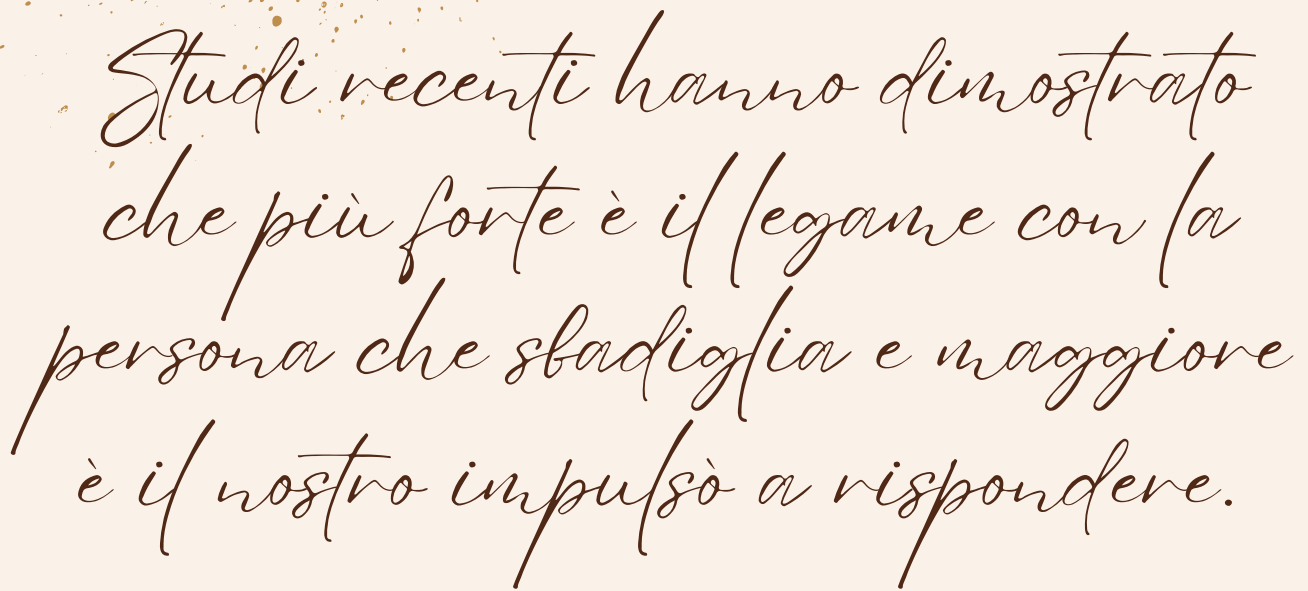 Studi recenti hanno dimostrato
che più forte è il legame con la
persona che sbadiglia e maggiore
è il nostro impulsò a rispondere.